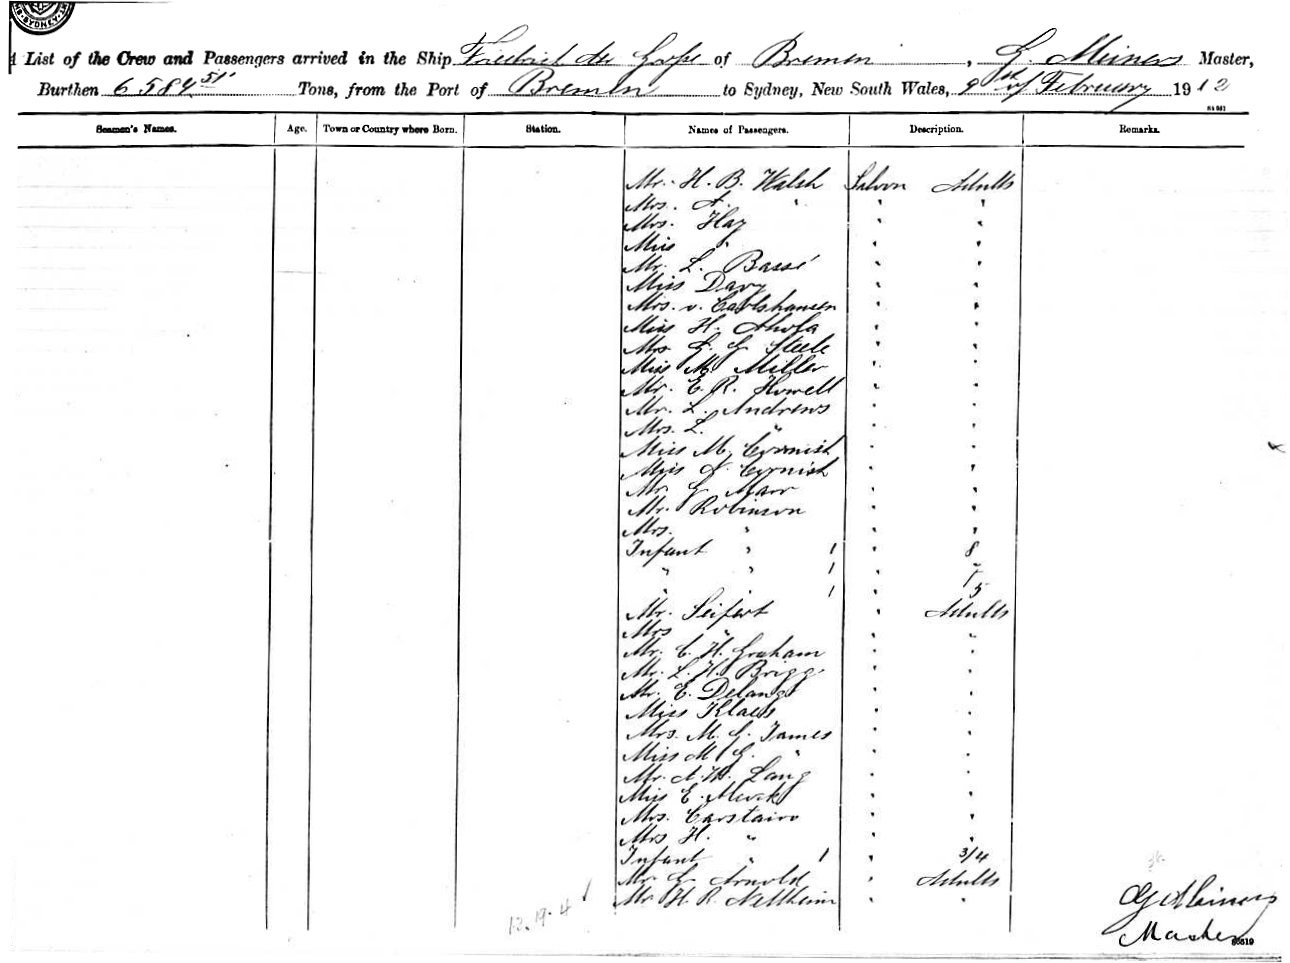 SYDNEY
List of the Crew and Passengers arrived in the Ship Friedrich der Grosse of Bremen, G. Meiners Master,
Burthen 6584 51 Tons, from the Port of Bremen to Sydney, New South Wales, 9 of February 1912
Seamen's Names. Age. Town or Country where Born. Station. Names of Passengers. Description. Remarks.
Mr. H. B. Walsh Saloon Adults
Mrs. A. " " "
Mrs. Hay " "
Miss " " "
Mr. L. Bassé " "
Miss Davy " "
Mrs. v. Carlshausen " "
Miss H. " "
Mrs. G. G. Steele " "
Miss M. Miller " "
Mr. E. R. Howell " "
Mr. L. Andrews " "
Mrs. L. " " "
Miss M. Cornish " "
Miss A. Cornish " "
Mr. G. Marr " "
Mr. Robinson " "
Mrs. " " "
Infant " 1 " 8
" " 1 " 7
" 1 " 5
Mr. Seifert " Adults
Mrs " " "
Mr. C. H. Graham " "
Mr. L. H. Brigg " "
Mr. E. Delang " "
Miss Klaes " "
Mrs. M. G. James " "
Miss M G. " " "
Mr. A. W. Lang " "
Miss E. Merck " "
Mrs. Carstairs " "
Mrs H. " " "
Infant " 1 " 3/4
Mr. G. Arnold " Adults
Mr H. R. Nettheim " "
12.19.4
G Meiners
Master